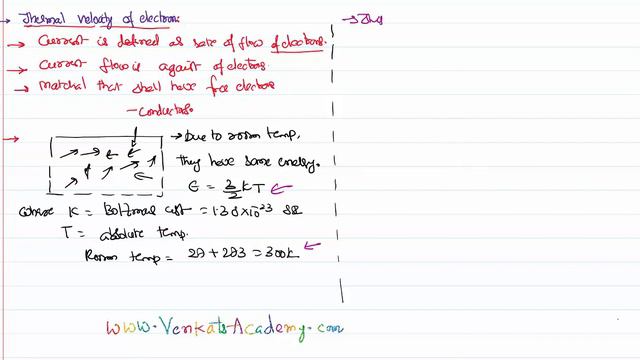 → Thermal velocity of electron:
→ Current is defined as rate of flow of electrons.
→ Current flow is against of electors
→ Material that shall have free electrons
– conductors.
→ Due to room temp,
they have some energy.
E = 3/2 KT ←
where K = Boltzmas cist = 1.38×10^-23
T = absolute temp.
Room temp = 27 + 273 = 300k ←
→ The
www.VenkatsAcademy.com